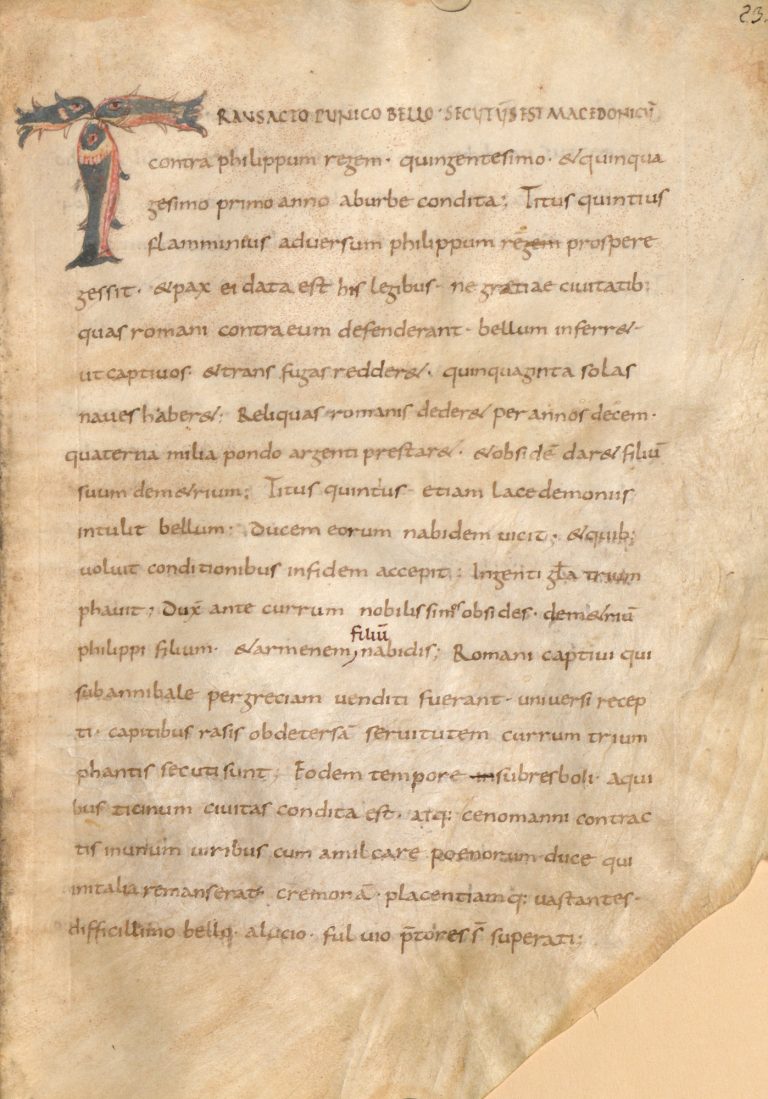 23.
TRANSACTO PUNICO BELLO · SECUTUS EST MACEDONICŪ
contra philippum regem · quingentesimo · & quinqua
gesimo primo anno ab urbe condita; Titus quintius
flamminius adversum philippum regem prospere
gessit · & pax ei data est his legibus · ne gretiae civitatib;
quas romani contra eum defenderant · bellum inferr& ·
ut captivos · & trans fugas redder& · quinquaginta solas
naves haber&; Reliquas romanis deder& per annos decem ·
quaterna milia pondo argenti prestar& · & obsidē dar& filiū
suum dem&rium; Titus quintus etiam lacedemoniis
intulit bellum; Ducem eorum nabidem vicit · & quib;
voluit conditionibus in fidem accepit; Ingenti gła trium
phavit; Dux̄ ante currum nobilissim obsides · dem&riū
filiū
philippi filium · & armenem, nabidis; Romani captivi qui
sub annibale per greciam venditi fuerant · universi recep
ti · capitibus rasis ob detersā servitutem currum trium
phantis secuti sunt; Eodem tempore in subres boli · a qui
bus ticinum civitas condita est · atq: cenomanni contrac
tis in unum viribus cum amilcare poenorum duce qui
in italia remanserat · cremonā · placentiamq: vastantes ·
difficillimo bello · a lucio · fulvio p̄tores s̄ superati;